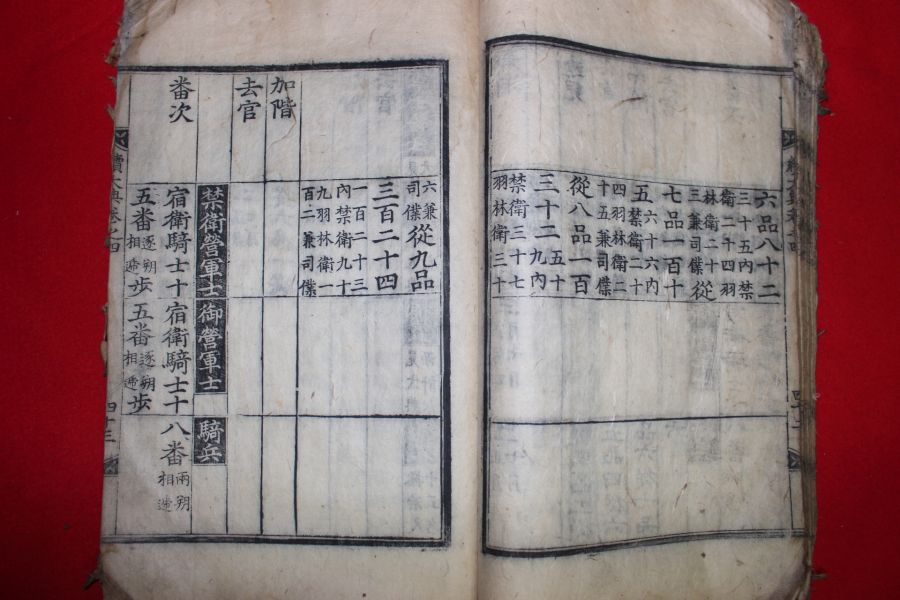 六品八十二
三十五內禁
衛二十四羽
林衛二十
三兼司僕
從
七品一百十
五
六十六內
禁衛二十
四羽林衛二
十五兼司僕
從八品一百
三十二
五十
九內
禁衛三十七
羽林衛三十
六兼
司僕
從九品
三百二十四
一百二十三
內禁衛九十
九羽林衛一
百二兼司僕
加階
去官
禁衛營軍士
御營軍士
騎兵
番次
宿衛騎士十
五番
逐朔
相遞
步
宿衛騎士十
五番
逐朔
相遞
步
八番
兩朔
相遞
續大典卷之四
四十三